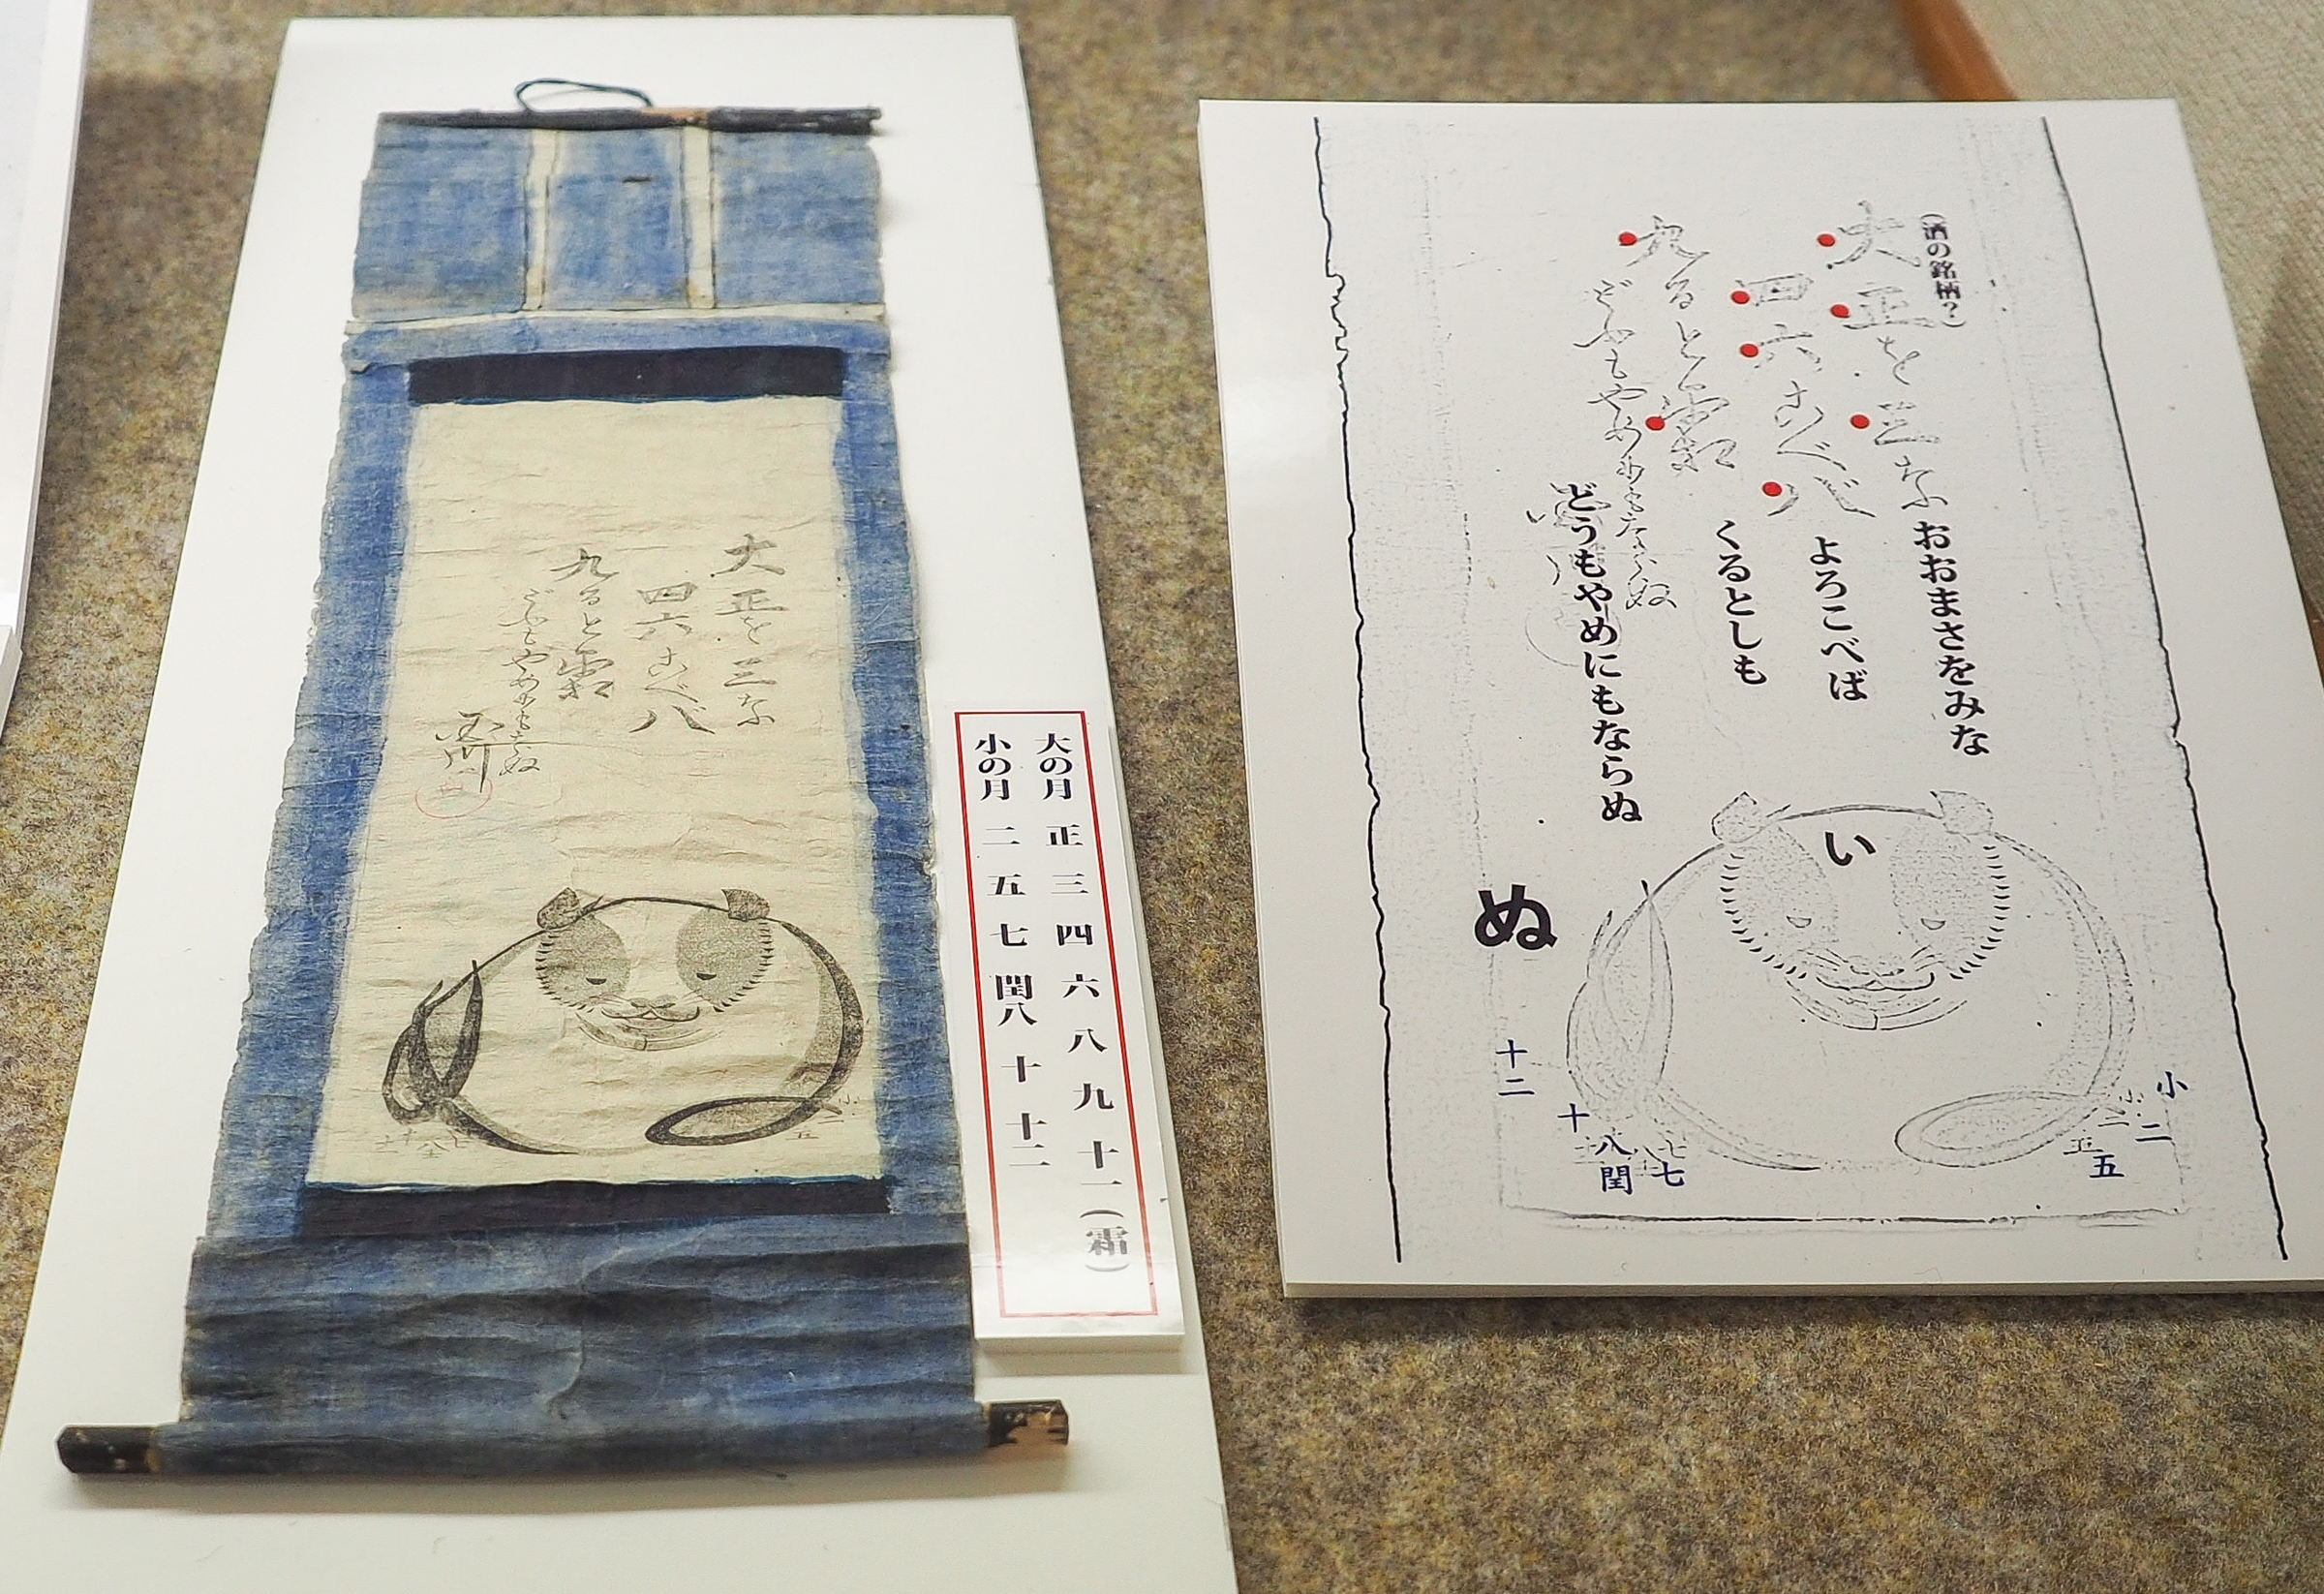 大正を三な
四六こべ八
九ると霜
どふもやめにもならぬ
大の月 正 三 四 六 八 九 十一(霜)
小の月 二 五 七 閏八 十 十二
(酒の銘柄?)
大正を三な
おおまさをみな
四六こべ八
よろこべば
九ると霜
くるとしも
どふもやめにもならぬ
どうもやめにもならぬ
い
ぬ
小
二
五
七
八閏
十
十二